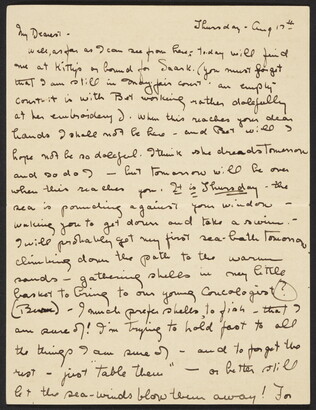 Thursday - Aug 17th
My Dearest -
Well, as far as I can see from here, today will find
me at Kitty's or bound for Saark. (You must forget
that I am still in Mayfair court - an empty
court it is with Bet working rather dolefully
at her embroidery). When this reaches your dear
hands I shall not be here - and Bet will I
hope not be so doleful. I think she dreads tomorrow
and so do I - but tomorrow will be over
when this reaches you. It is Thursday - the
sea is pounding against your window -
waking you to get down and take a swim. -
I will probably get my first sea-bath tomorrow,
climbing down the path to the warm
sands - gathering shells in my little
basket to bring to our young Concologist (?)
- I much prefer shells to fish - that I
am sure of! I'm trying to hold fast to all
the things I am sure of - and to forget the
rest - just "table them" - or better still
let the sea-winds blow them away! For